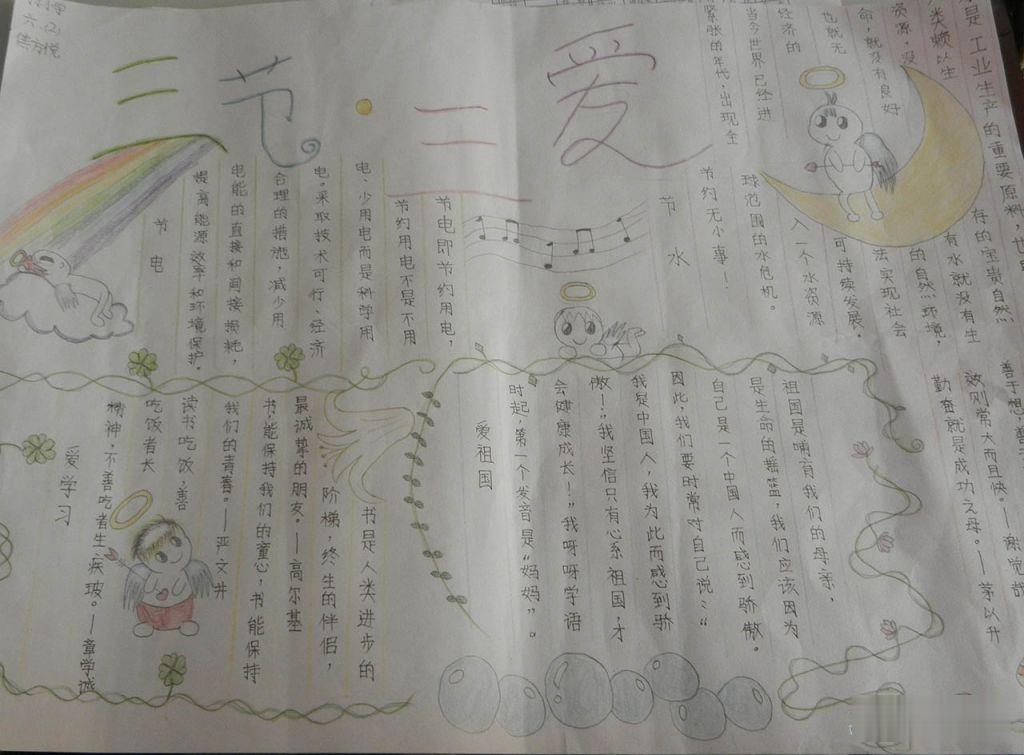 二节·三爱
六
节水
水是工业生产的重要原料,也是
人类赖以生存的宝贵自然
资源,没有水就没有生
命,就没有良好的自然环境,
也就无法实现社会
经济的可持续发展。
当今世界已经进入一个水资源
紧张的年代,出现全球范围的水危机。
节约无小事!
节电
节电即节约用电,
节约用电不是不用
电、少用电而是科学用
电。采取技术可行、经济
合理的措施,减少用
电能的直接和间接损耗,
提高能源效率和环境保护。
善于想、善
效则常大而且快。——谢觉哉
勤奋就是成功之母。——茅以升
祖国是哺育我们的母亲,
是生命的摇篮,我们应该因为
自己是一个中国人而感到骄傲。
因此,我们要时常对自己说:“
我是中国人,我为此而感到骄
傲!”我坚信只有心系祖国,才
会健康成长!”我呀呀学语
时起,第一个发音是“妈妈”。
爱祖国
书是人类进步的
阶梯,终生的伴侣,
最诚挚的朋友。——高尔基
书,能保持我们的童心,书能保持
我们的青春。——严文井
读书吃饭,善
吃饭者长
精神,不善吃者生疾玻。——章学诚
爱学习